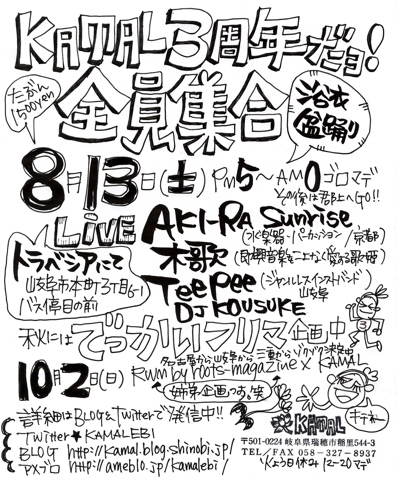 KAMAL3周年だョ!
全員集合
たぶん
1500yen
浴衣
盆踊り
8月13日(土) PM5~AM0ゴロマデ
その後は郡上へGO!!
LiVE
AKI-RA Sunrise
(水楽器・パーカッション/京都)
木歌
トラベシアにて
岐阜市本町3丁目6-1
バス停目の前
Teepee
(ジャンルレスインストバンド/
岐阜
DJ KOUSUKE
秋にはでっかいフリマ企画中
名古屋から岐阜から三重からゾクゾク決定中
10月2日(日)
Rwm by roots-magazine × KAMAL
姉弟企画っす。笑
詳細はBLOG&twitterで発信中!!
TWiTTER★KAMALEBI
BLOG http://kamal.blog.shinobi.jp/
アメブロ http://ameblo.jp/kamalebi/
KAMAL
キテネー
〒501-0224 岐阜県瑞穂市稲里544-3
TEL/FAX 058-327-8937
火よう日休み 12-20マデ